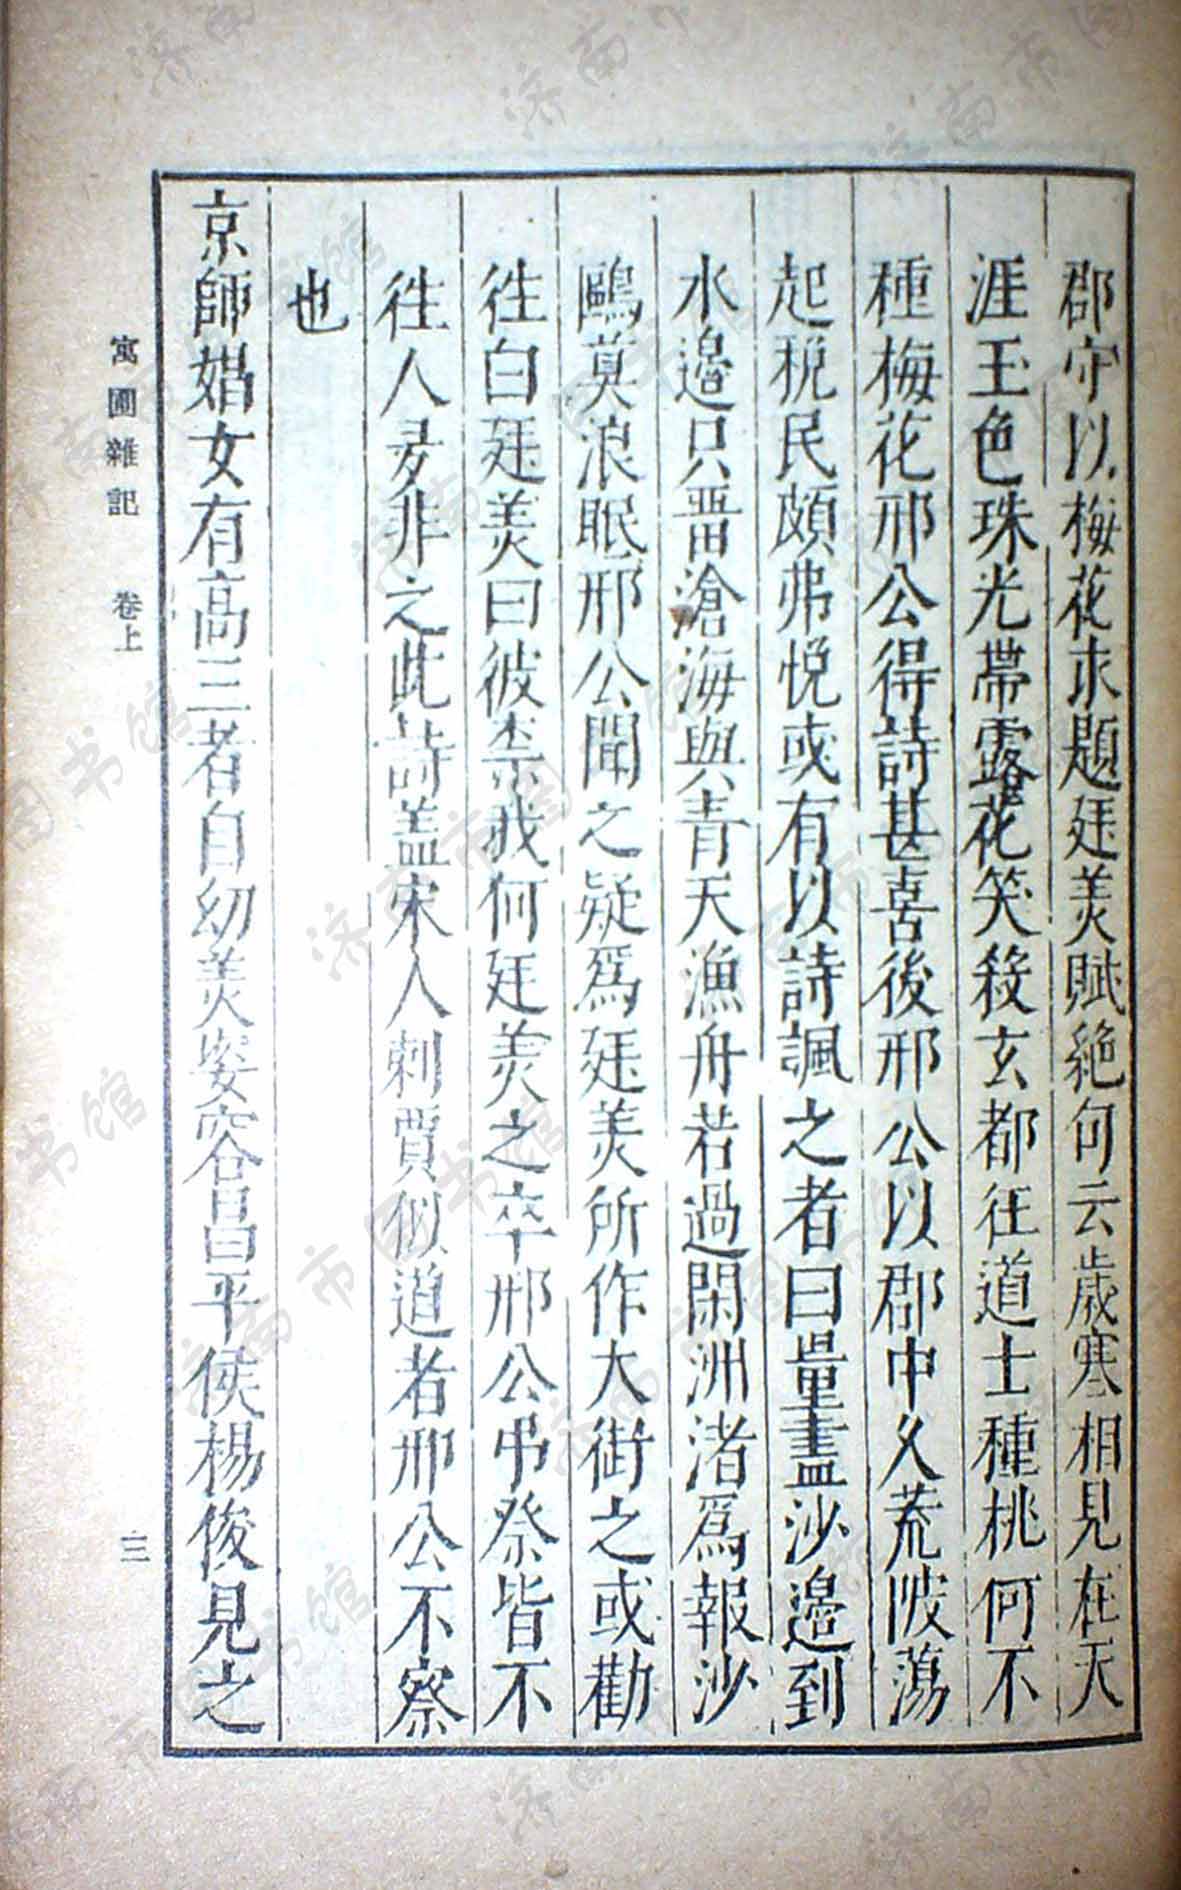 郡守以梅花求題廷美賦絕句云歲寒相見在天
涯玉色珠光帶露花笑殺玄都任道士種桃何不
種梅花邢公得詩甚喜後邢公以郡中久荒陂蕩
起稅民頗弗悅或有以詩諷之者曰量盡沙邊到
水邊只畱滄海與青天漁舟若過閑洲渚爲報沙
鷗莫浪眠邢公聞之疑爲廷美所作大銜之或勸
徃白廷美曰彼柰我何廷美之卒邢公弔祭皆不
徃人㕛非之此詩盖宋人刺賈似道者邢公不察
也
京師娼女有高三者自幼美姿容昌平侯楊俊見之
寓圃雜記 卷上 三